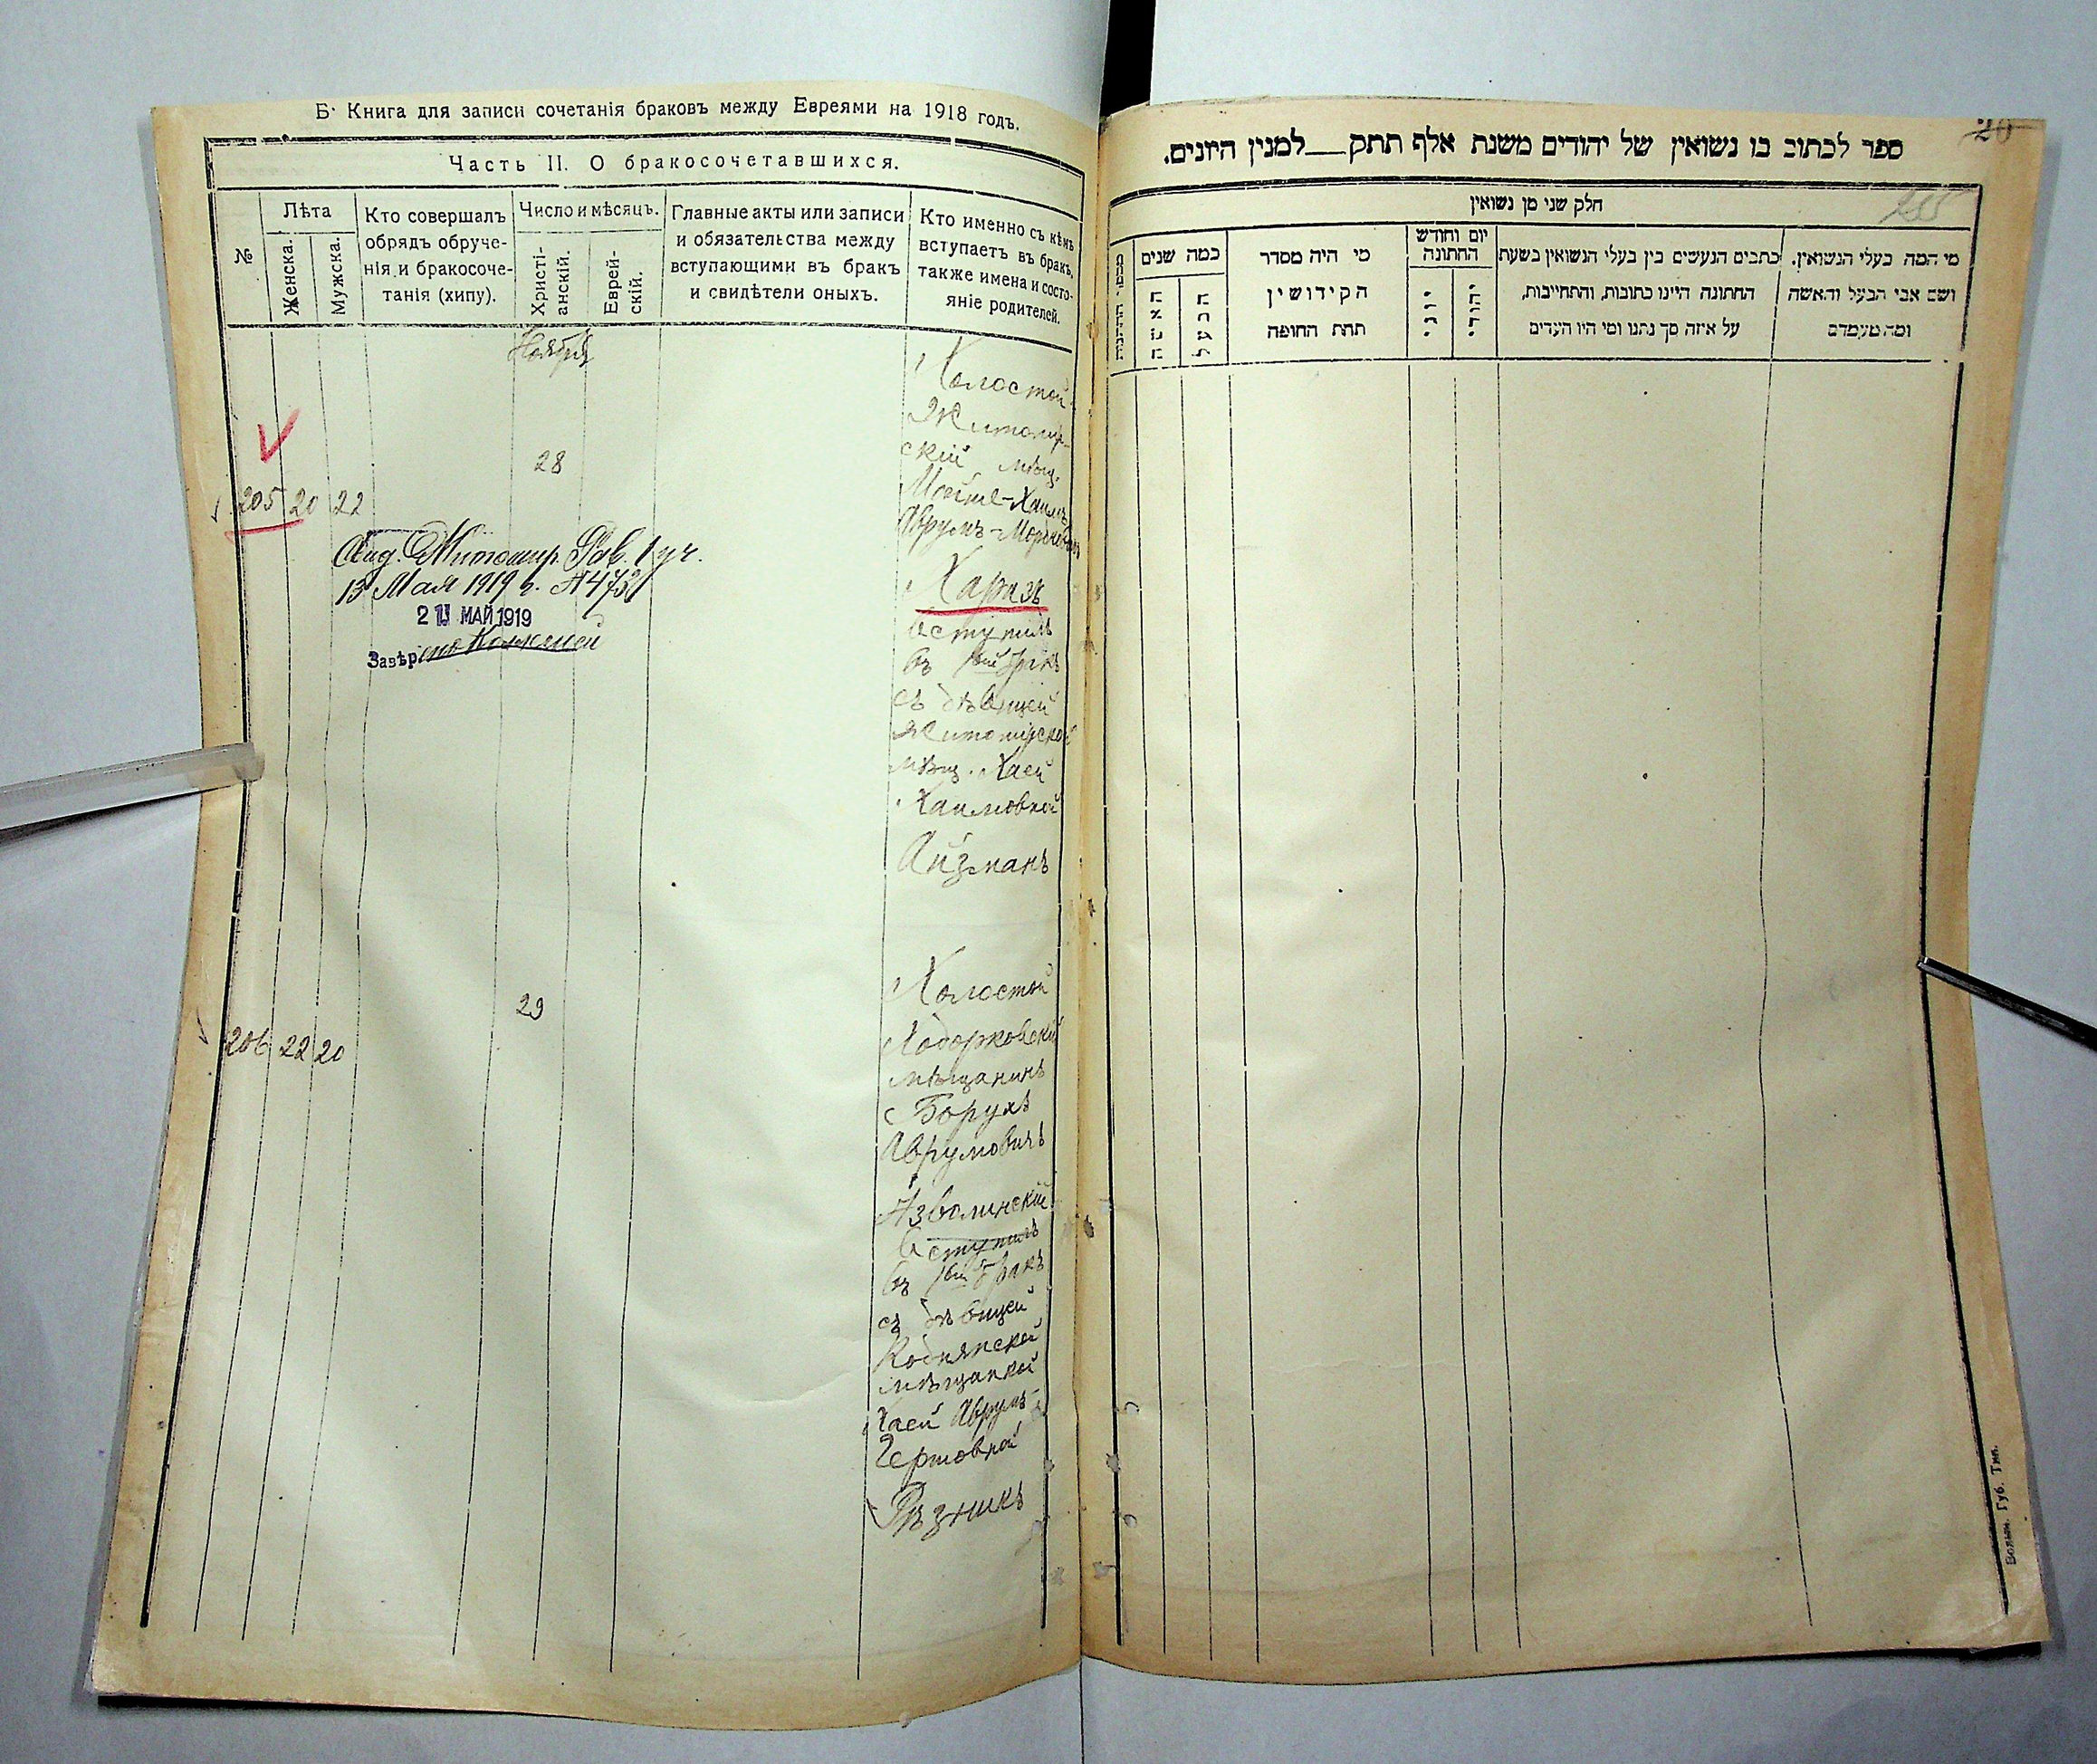 Б. Книга для записи сочетанія браковъ между Евреями на 1918 годъ.
Часть II. О бракосочетавшихся.
№
Лѣта
Женска.
Мужска.
Кто совершалъ
обрядъ обруче-
нія и бракосоче-
танія (хипу).
Число и мѣсяцъ.
Христі-
анскій.
Еврей-
скій.
Главные акты или записи
и обязательства между
вступающими въ бракъ
и свидѣтели оныхъ.
Кто именно съ кѣмъ
вступаетъ въ бракъ,
также имена и состо-
яніе родителей.
Ноября
28
205 20 22
Холостой
Житомир-
скій мѣщ.
Мойше-Хаимъ
Аврумъ-Мордков
Харазъ
вступилъ
въ 1ый бракъ
съ дѣвицей
Житомірской
мѣщ. Хаей
Хаимовной
Айзманъ
Житомир. Рав. 1 уч.
13 Мая 1919 г. №473
21 МАЙ 1919
Завѣр
29
206 22 20
Холостой
Ходорковскій
мѣщанинъ
Борухъ
Аврумовичъ
Азволинскій
вступилъ
въ 1ый бракъ
съ дѣвицей
Коднянской
мѣщанкой
Хаей Аврумъ-
Гершовной
Рѣзникъ
20
ספר לכתוב בו נשואין של יהודים משנת אלף תתק__למנין היונים.
חלק שני מן נשואין
מספר החתונות
כמה שנים
האשה
הבעל
מי היה מסדר
הקידושין
תחת החופה
יום וחודש
החתונה
יוני
יהודי
כתבים הנעשים בין בעלי הנשואין בשעת
החתונה היינו כתובות, והתחייבות,
על איזה סך נתנו ומי היו העדים
מי המה בעלי הנשואין.
ושם אבי הבעל והאשה
ומה מעמדם
Волын. Губ. Тип.